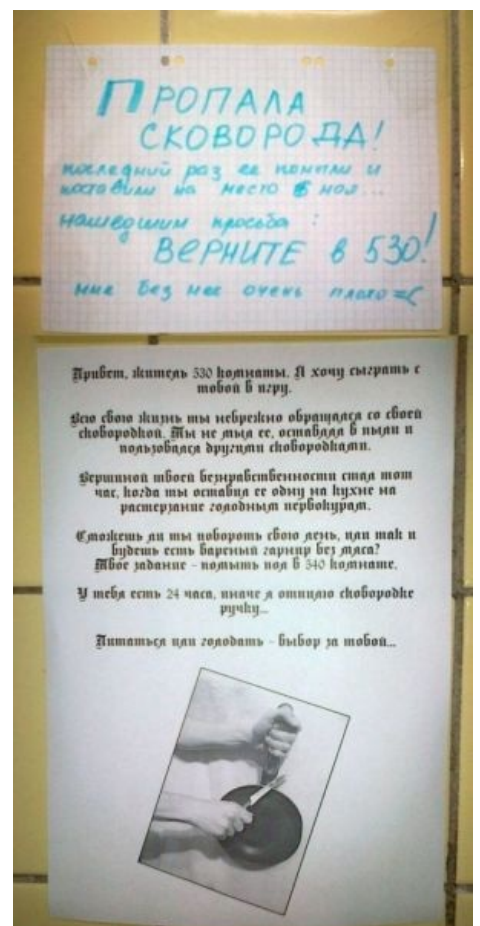 ПРОПАЛА
СКОВОРОДА!
последний раз ее помыли и
поставили на место 6 мая...
нашедшим просьба:
ВЕРНИТЕ в 530!
мне без нее очень плохо =(
Привет, житель 530 комнаты. Я хочу сыграть с
тобой в игру.
Всю свою жизнь ты небрежно обращался со своей
сковородкой. Ты не мыл ее, оставлял в пыли и
пользовался другими сковородками.
Вершиной твоей безнравственности стал тот
час, когда ты оставил ее одну на кухне на
растерзание голодным первокурам.
Сможешь ли ты побороть свою лень, или так и
будешь есть вареный гарнир без мяса?
Твое задание - помыть пол в 340 комнате.
У тебя есть 24 часа, иначе я отпилю сковородке
ручку...
Питаться или голодать - выбор за тобой...